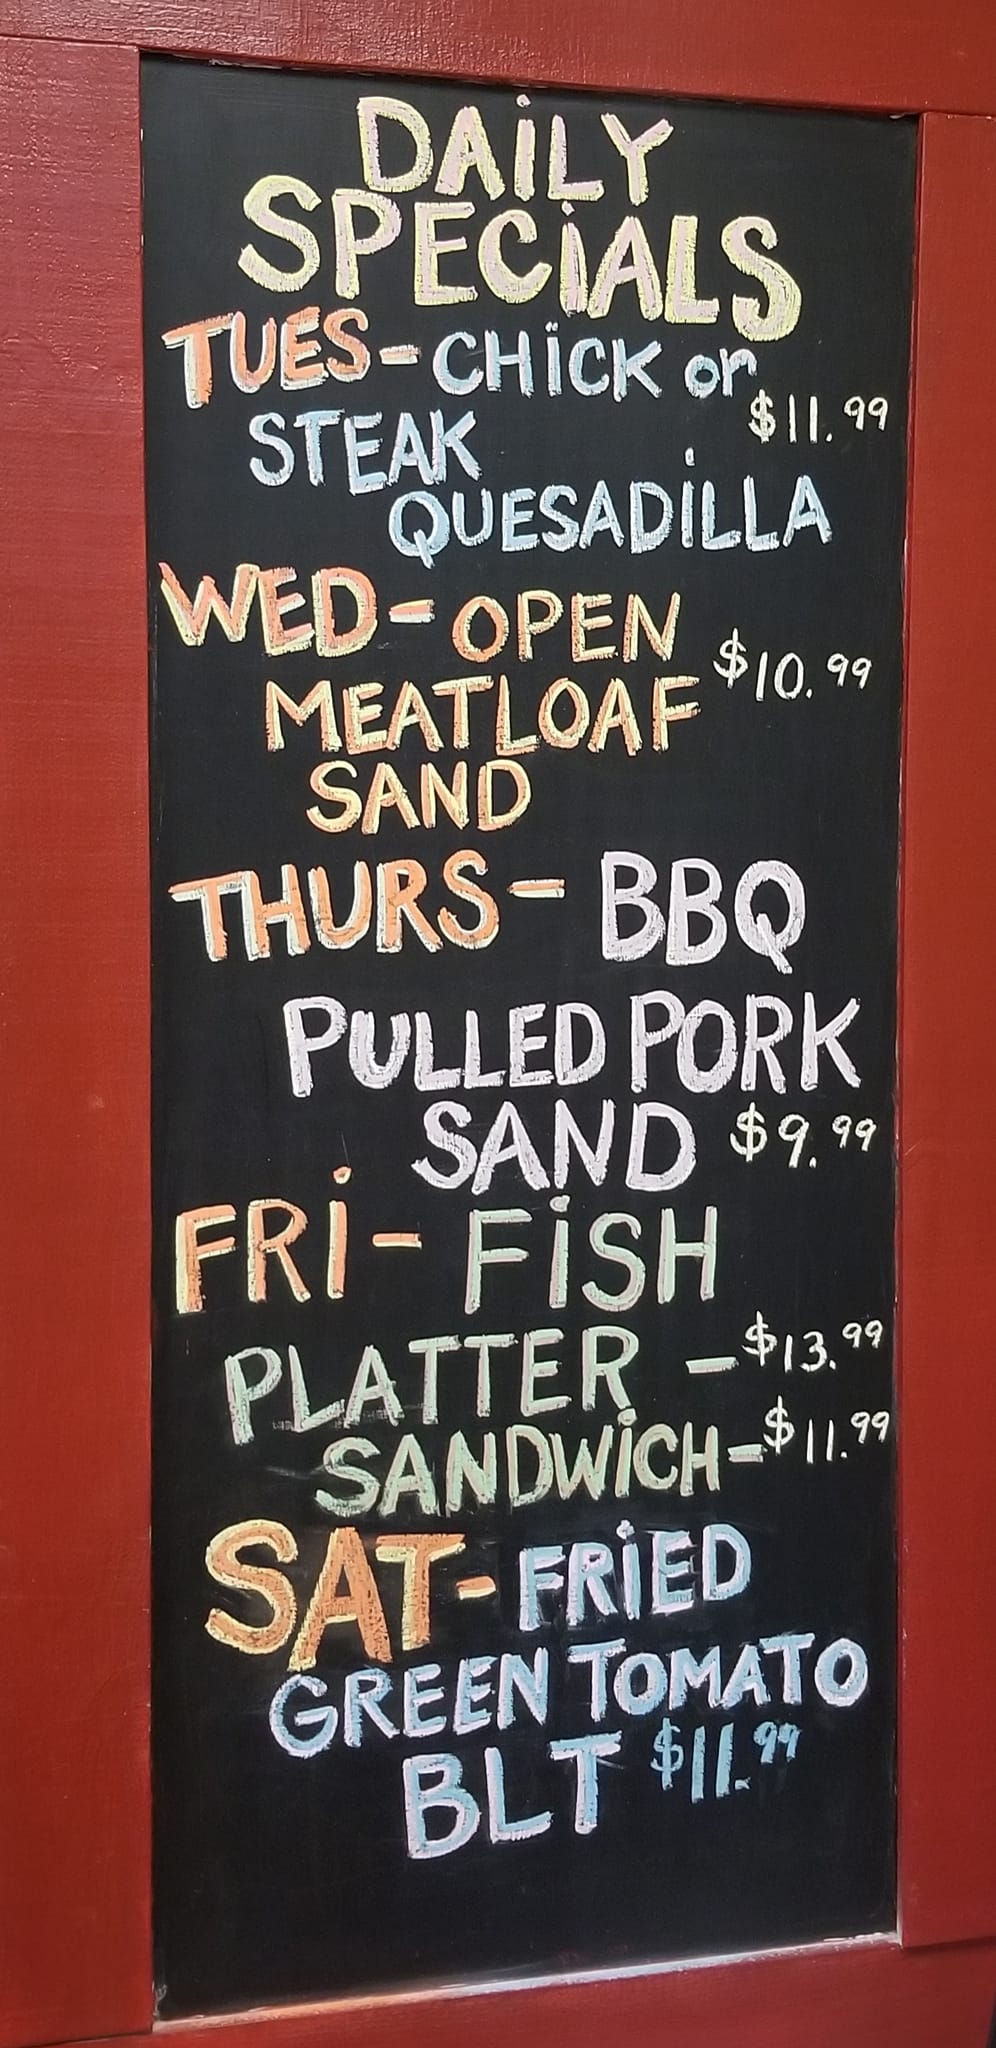 DAILY
SPECIALS
TUES- CHICK or
$11.99
STEAK
QUESADILLA
WED- OPEN
$10.99
MEATLOAF
SAND
THURS- BBQ
PULLED PORK
SAND $9.99
FRI- FISH
PLATTER -$13.99
SANDWICH-$11.99
SAT- FRIED
GREEN TOMATO
BLT $11.99